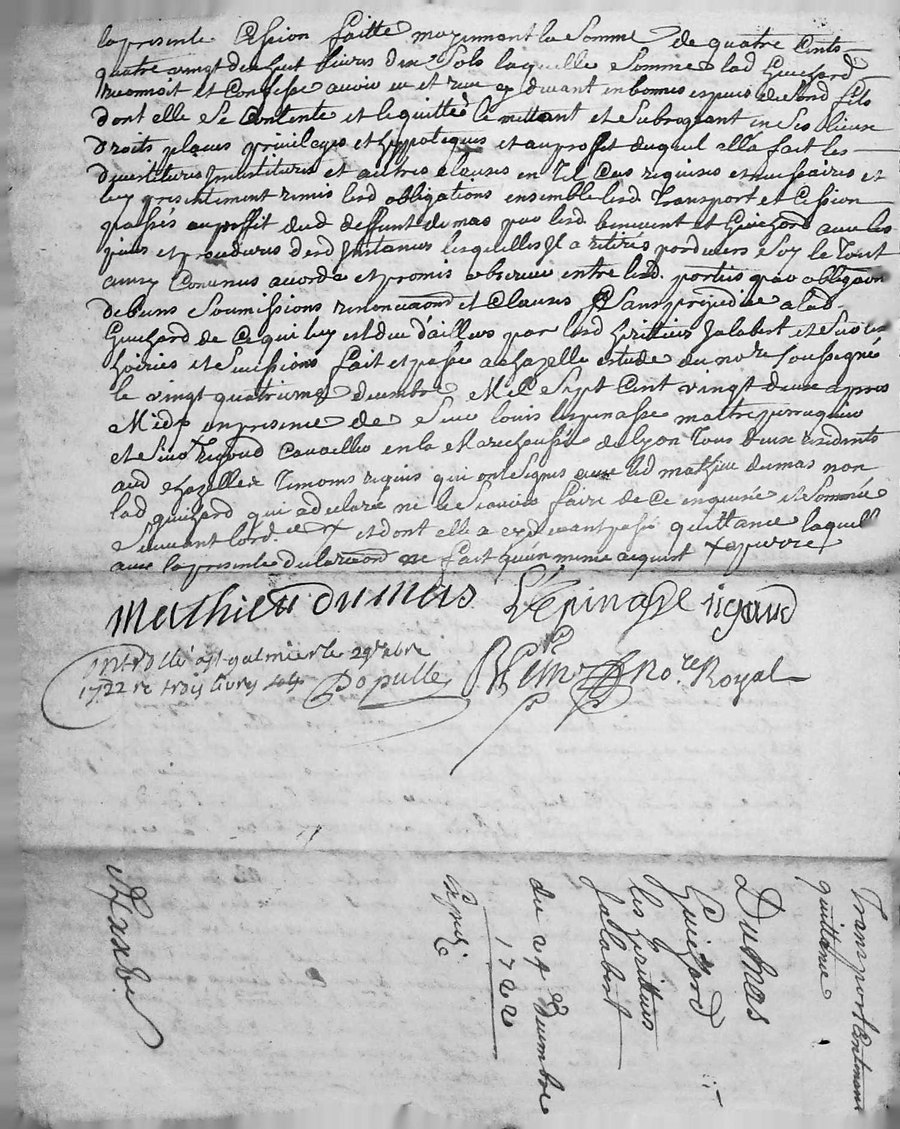 la presente Cession faitte moyennant la Somme de quatre Cents
quatre vingt dix huit livres dix Sols laquelle Somme lad Guichard
reconnoit et Confesse avoir eu et receu cy devant en bonnes especes dud Sr
dont elle Se Contente et le quitte le mettant et Subrogeant en Ses lieux
droits places privileges et hypoteques et au proffit duquel alla fait les
devestitures Investitures et autres clauses en Tel Cas requises et necessaires et
luy presentement remis lesd obligations ensemble lesd Transport et Cession
passés au proffit dud deffunt dumas par lesd et Guichard avec les
pieces et procedures desd Instances lesquelles Il a retirés pardevers Soy le Tout
ainsy Convenus accordé et promis observer entre lesd. parties par obligaon
de biens Soumissions renonciaons et Clauses Sans prejudice a lad.
Guichard de Ce qui luy est due d'ailleurs par lesd heritiers Jalabert et Ses
hoiries et Successions fait et passé a Chazelle estude du nore Soussigné
le vingt quatrieme decembre Mil Sept Cent vingt deux apres
Midy en presence de Sieur louis lespinasse maitre perruquier
et Sieur rigaud Cavallier en la Marechaussée de lyon Tous deux residents
aud Chazelle Temoins requis qui ont Signés avec led mathieu dumas non
lad guichard qui a declaré ne le Scavoir faire de Ce enquise et Sommée
Suivant lord.ce et dont elle a cy devant passé quittance laquelle
avec la presente declaraon ne fait qu'un meme acquist
Mathieu dumas Lespinasse rigaud
Controllé a St galmier le 29 xbre
1722 re trois livres Populle nore Royal
Transport Contenant
quittance
Dumas
Guichard
les heritiers
Jalabert
du 24 Decembre
1722